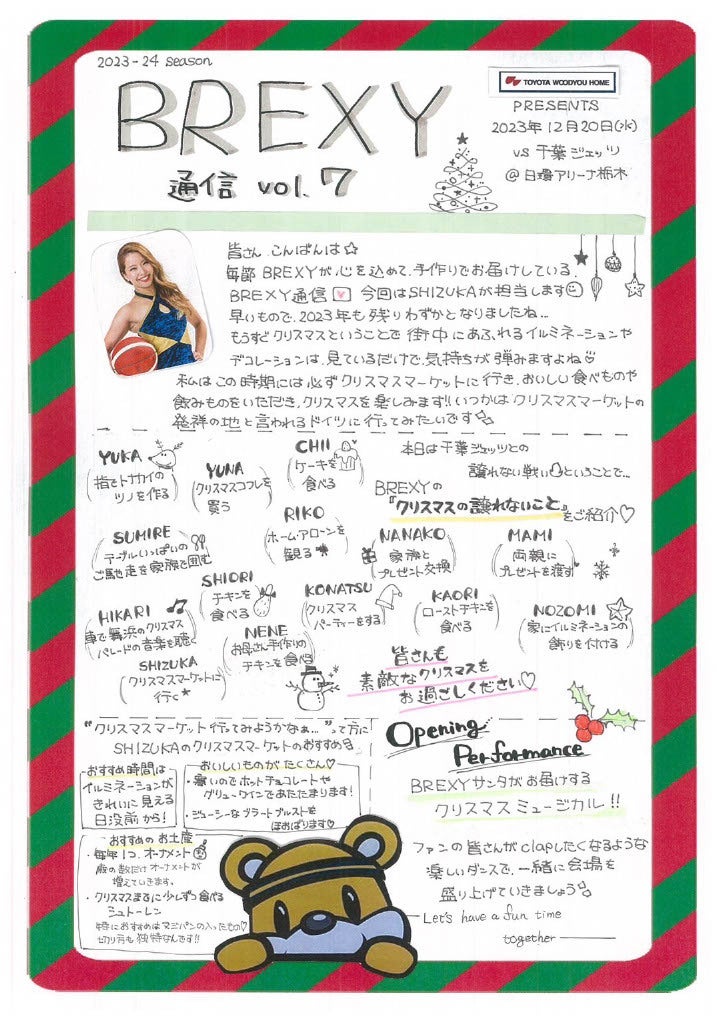 2023-24 season
BREXY
通信 vol.7
TOYOTA WOODYOU HOME
PRESENTS
2023年12月20日(水)
vs 千葉ジェッツ
@ 日環アリーナ栃木
皆さん こんばんは☆
毎節 BREXYが心を込めて、手作りでお届けしている、
BREXY通信 今回はSHIZUKAが担当します
早いもので、2023年も残りわずかとなりましたね…
もうすぐクリスマスということで 街中にあふれるイルミネーションや
デコレーションは、見ているだけで、気持ちが弾みますよね
私はこの時期には必ずクリスマスマーケットに行き、おいしい食べものや
飲みものをいただき、クリスマスを楽しみます!! いつかは クリスマスマーケットの
発祥の地と言われるドイツに行ってみたいです
本日は千葉ジェッツとの
譲れない戦いということで…
BREXYの
『クリスマスの譲れないこと』
をご紹介♡
YUKA
(指でトナカイの
ツノを作る)
YUNA
(クリスマスコフレを
買う)
CHII
(ケーキを
食べる)
SUMIRE
(テーブルいっぱいの
ご馳走を家族で囲む)
RIKO
(ホームアローンを
観る)
NANAKO
(家族と
プレゼント交換)
MAMI
(両親に
プレゼントを渡す)
SHIORI
(チキンを
食べる)
KONATSU
(クリスマス
パーティーをする)
KAORI
(ローストチキンを
食べる)
NOZOMI
(家にイルミネーションの
飾りを付ける)
HIKARI
(車で舞浜のクリスマス
パレードの音楽を聴く)
NENE
(お母さん手作りの
チキンを食べる)
SHIZUKA
(クリスマスマーケットに
行く★)
皆さんも
素敵なクリスマスを
お過ごしください♡
"クリスマスマーケット行ってみようかなぁ…"って方に
SHIZUKAのクリスマスマーケットのおすすめ
おすすめ時間は
イルミネーションが
きれいに見える
日没前から!
おいしいものがたくさん♡
・寒いのでホットチョコレートや
グリューワインであたたまります!
・ジューシーなブラートブルストを
ほおばります♡
おすすめのお土産
・毎年1つ、オーナメント
歳の数だけオーナメントが
増えていきます。
・クリスマスまでに少しずつ食べる
シュトーレン
特におすすめはマジパンの入ったもの♡
切り方も独特なんです!!
Opening
Performance
BREXYサンタがお届けする
クリスマスミュージカル!!
ファンの皆さんがclapしたくなるような
楽しいダンスで、一緒に会場を
盛り上げていきましょう
Let's have a fun time
together